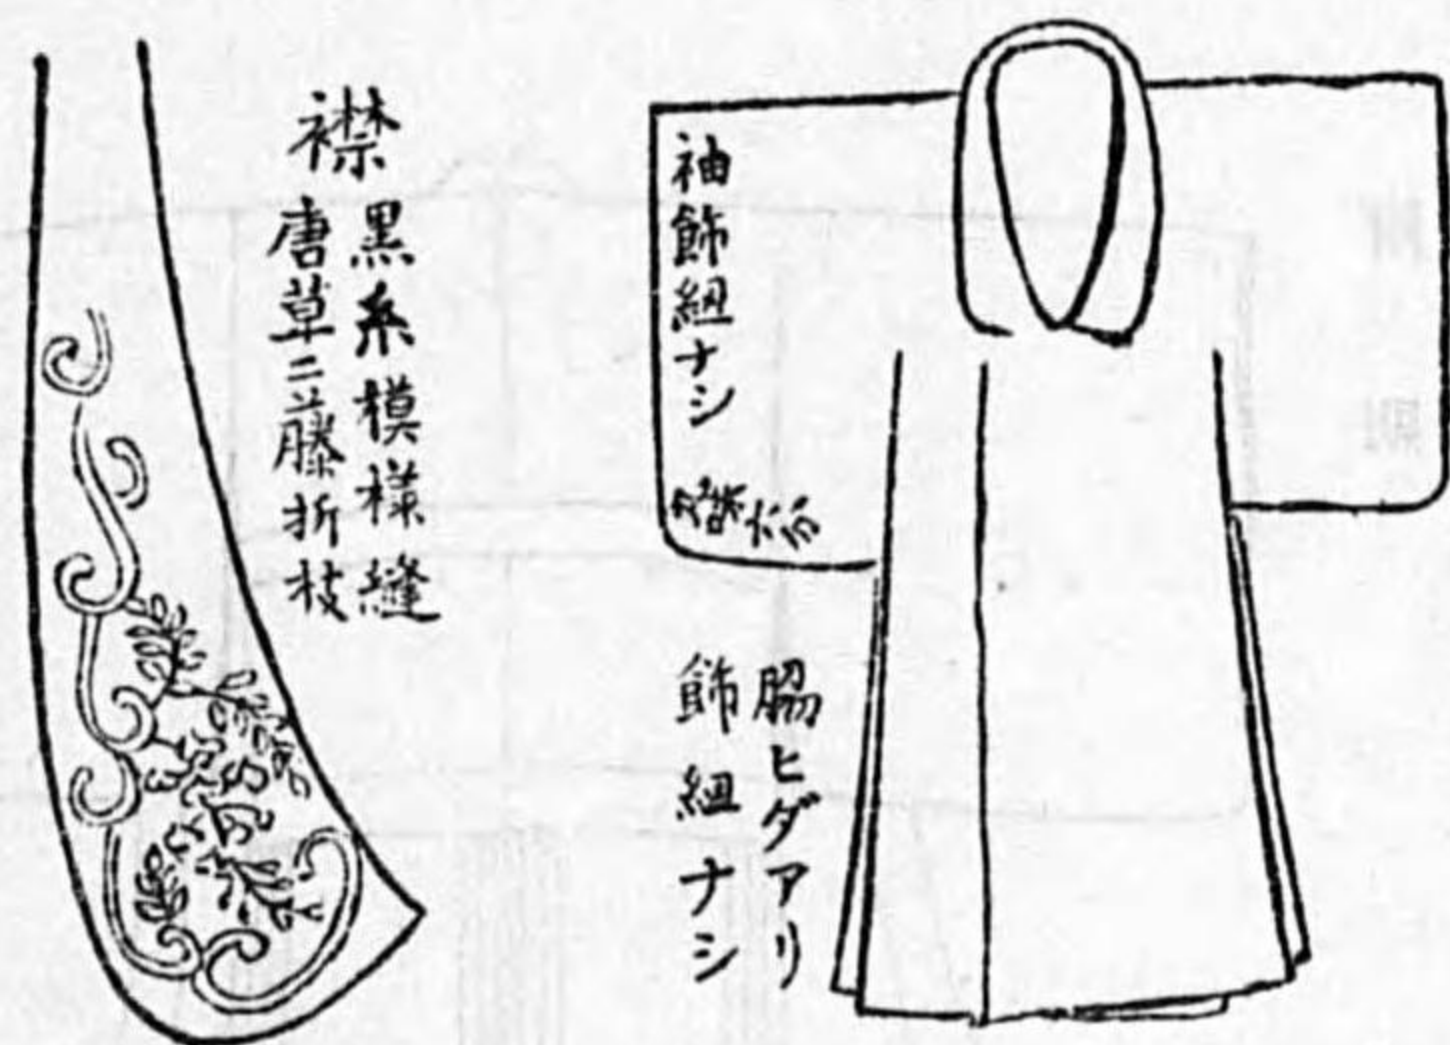 袖飾紐ナシ
脇ヒダアリ
飾紐ナシ
襟
黒糸模様縫
唐草ニ藤折枝